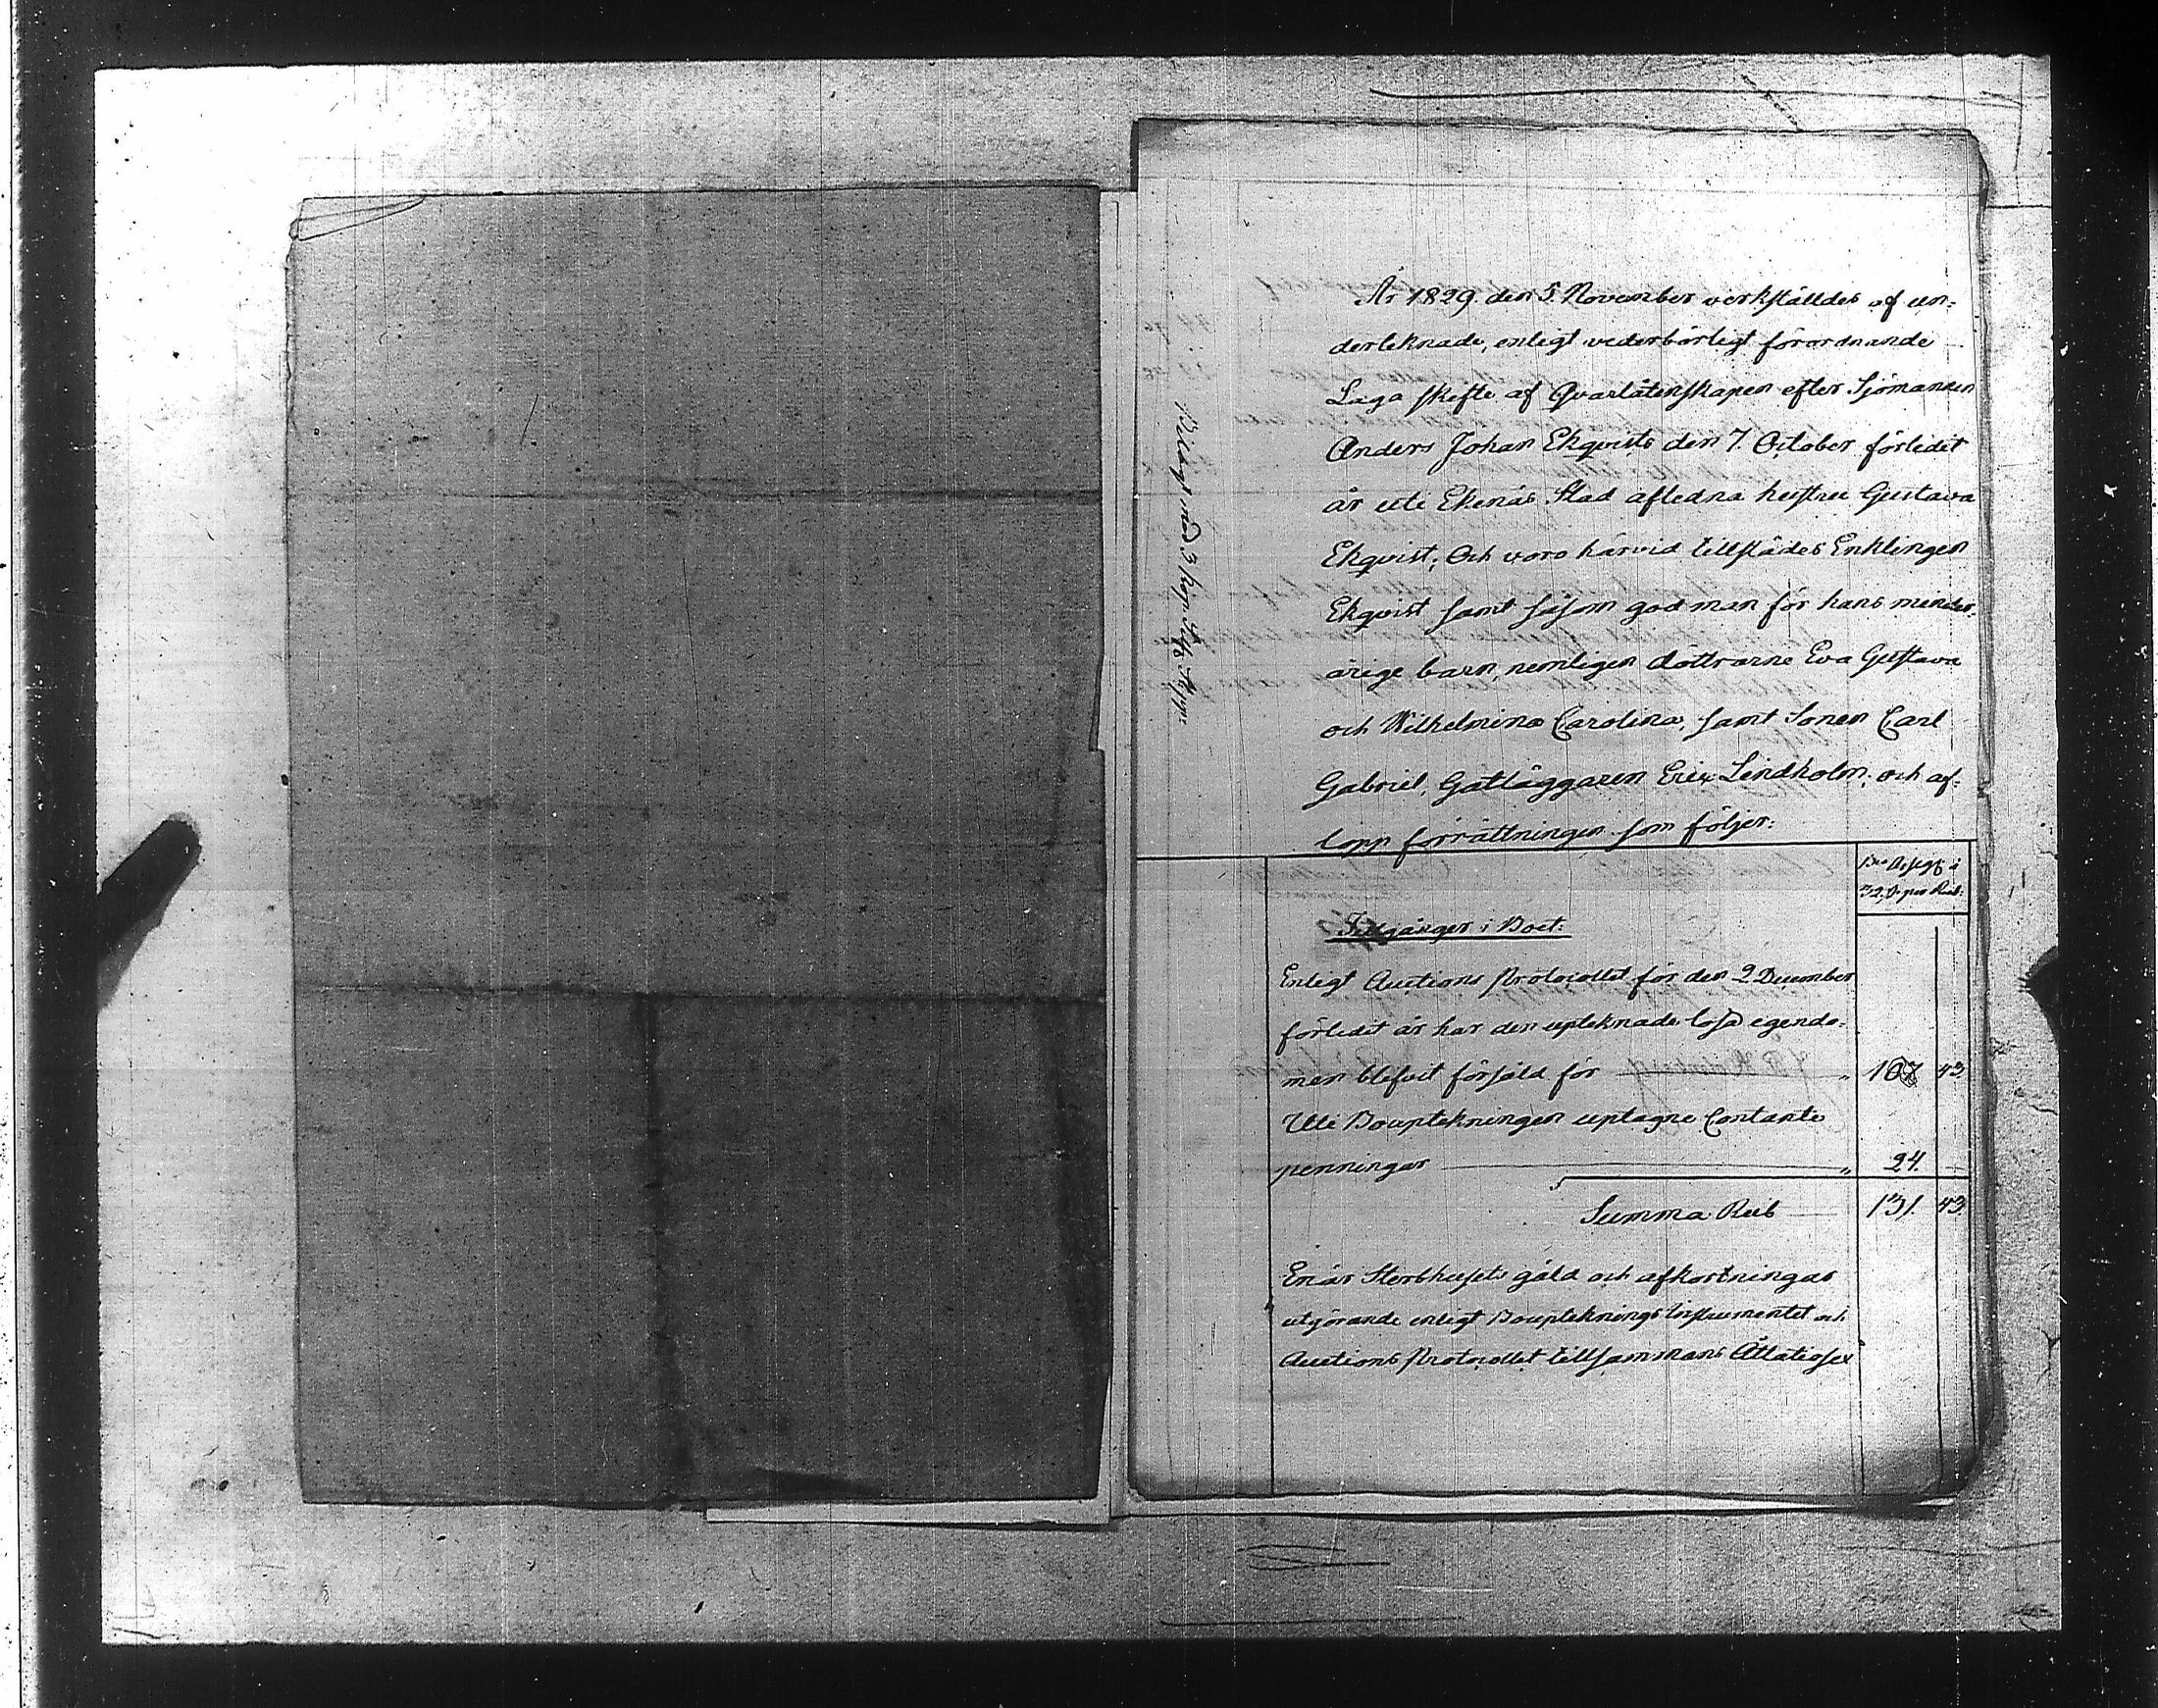 År 1829 den 5 November verkställdes af un-
derteknade, enligt vederbörligt förordnande
Laga skifte af Qvarlåtenskapen efter Sjömannen
Anders Johan Ekqvists den 7. October förledet
år uti Ekenäs Stad afledna hustru Gustava
Ekqvist; Och voro härvid tillstädes Enklingen
Ekqvist samt såsom god man för hans minder-
årige barn, nemligen döttrarne Eva Gustava
och Wilhelmina Carolina, samt Sonen Carl
Gabriel, Gatläggaren Eric Lindholm; och af-
lopp förrättningen som följer:
Bco Assign: à
Tillgånger i Boet:
Enligt Auctions Protocollet för den 2 December
förledit år har den upteknade lösa egendo-
men blefvit försåld för " 107 43
Uti Bouptekningen uptagne Contante
penningar " 24.
Summa Rub 131. 43.
Enär Sterbhusets gäld och afkortningar
utgörande enligt Boupteknings Instrumentet och
Auctions Protocollet tillsammans Åttatiosex
Belagt med 3 kop.